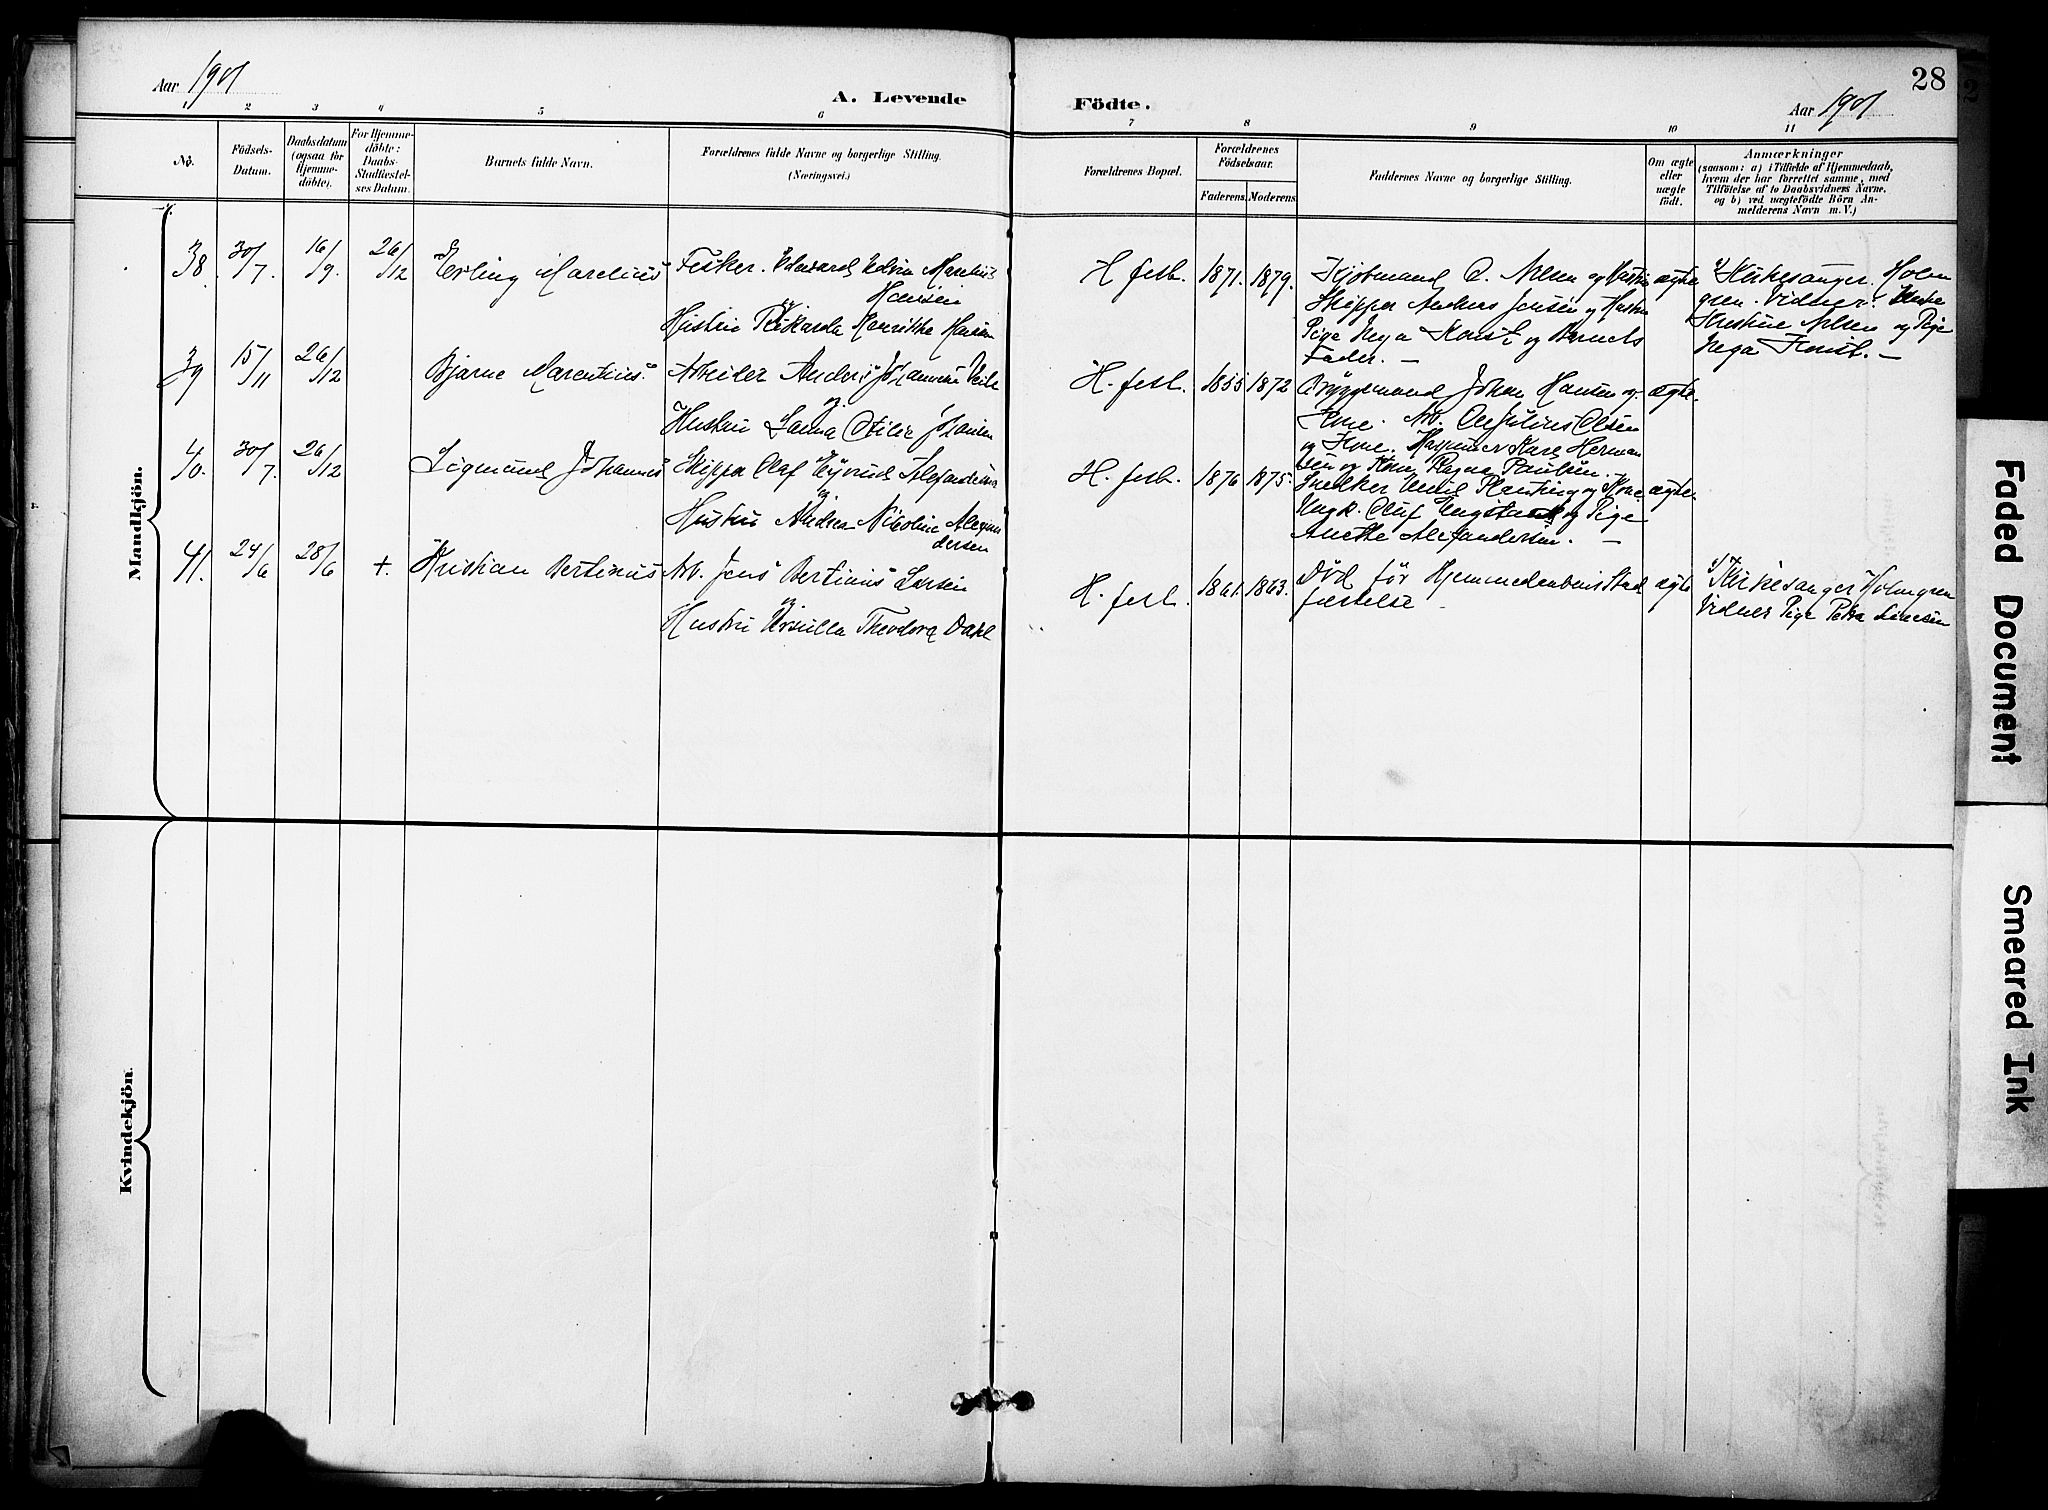 Aar 1901
A. Levende Födte.
Aar 1901
28
1 2 3 4 5 6 7 8 9 10 11
No.
Födsels-Datum.
Daabsdatum (ogsaa for Hjemme-döbte).
For Hjemme-döbte: Daabs-Stadfæstel-ses Datum.
Barnets fulde Navn.
Forældrenes fulde Navne og borgerlige Stilling. (Næringsvei.)
Forældrenes Bopæl.
Forældrenes Födselsaar.
Faderens. Moderens.
Faddernes Navne og borgerlige Stilling.
Om ægte eller uægte födt.
Anmærkninger
(saasom: a) i Tilfælde af Hjemmedaab,
hvem der har forrettet samme, med
Tilföielse af to Daabsvidners Navne,
og b) ved uægtefödte Börn An-
melderens Navn m. V.)
Mandkjön.
38. 30/7 16/9 26/12 Erling Marelius Fisker Edvard Marelius
Hansen
og
Hustru Rikarda Henrikke Hansen
H. fest. 1871. 1879. Kjöbmand O. Nilsen og Hustru ægte
Skipper Anders Jensen og Hustru
Pige Inga Konst og Barnets
Fader. —
1) Kirkesanger Holm
gren. Vidner:
Kristine Nilsen og Pige
Inga Konst. —
39 15/11 26/12 Bjarne Marentius. Arbeider Anders Johan
og
Hustru Lovisa Otilie Johansen
H. fest. 1855 1872 Bryggemand Johan Hansen og ægte.
Kone. Arb. Ole Julius Olsen
og Kone. Herman
sen og Kone Ragna Paulsen.
40. 30/7 26/12 Sigmund Johannes Skipper Olaf Eyvind Alexandersen
og
Hustru Andrea Nicoline Alexan
dersen
H. fest. 1876 1875. Snedker Plenting og Kone. ægte
Ungk. Oluf Engstad og Pige
Anette Alexandersen. —
41. 24/6 28/6 +. Kristian Bertinus Arb. Jens Bertinus Larsen
og
Hustru Ursulla Theodora Dahl
H. fest. 1861. 1863. Död för Hjemmedaabens Stad ægte
fæstelse —
1) Kirkesanger Holmgren
Vidner Pige Petra Larsen
Kvindekjön.
Faded Document
Smeared Ink